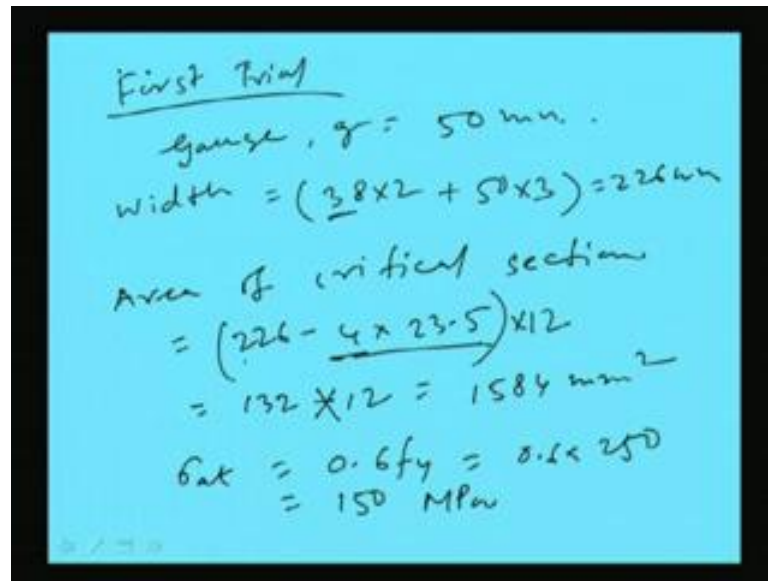 First Trial
Gauge, g = 50 mm.
width = (38x2 + 50x3) = 226 mm
Area of critical section
= (226 - 4 x 23.5)x12
= 132 x 12 = 1584 mm²
σat = 0.6fy = 0.6x 250
= 150 MPa